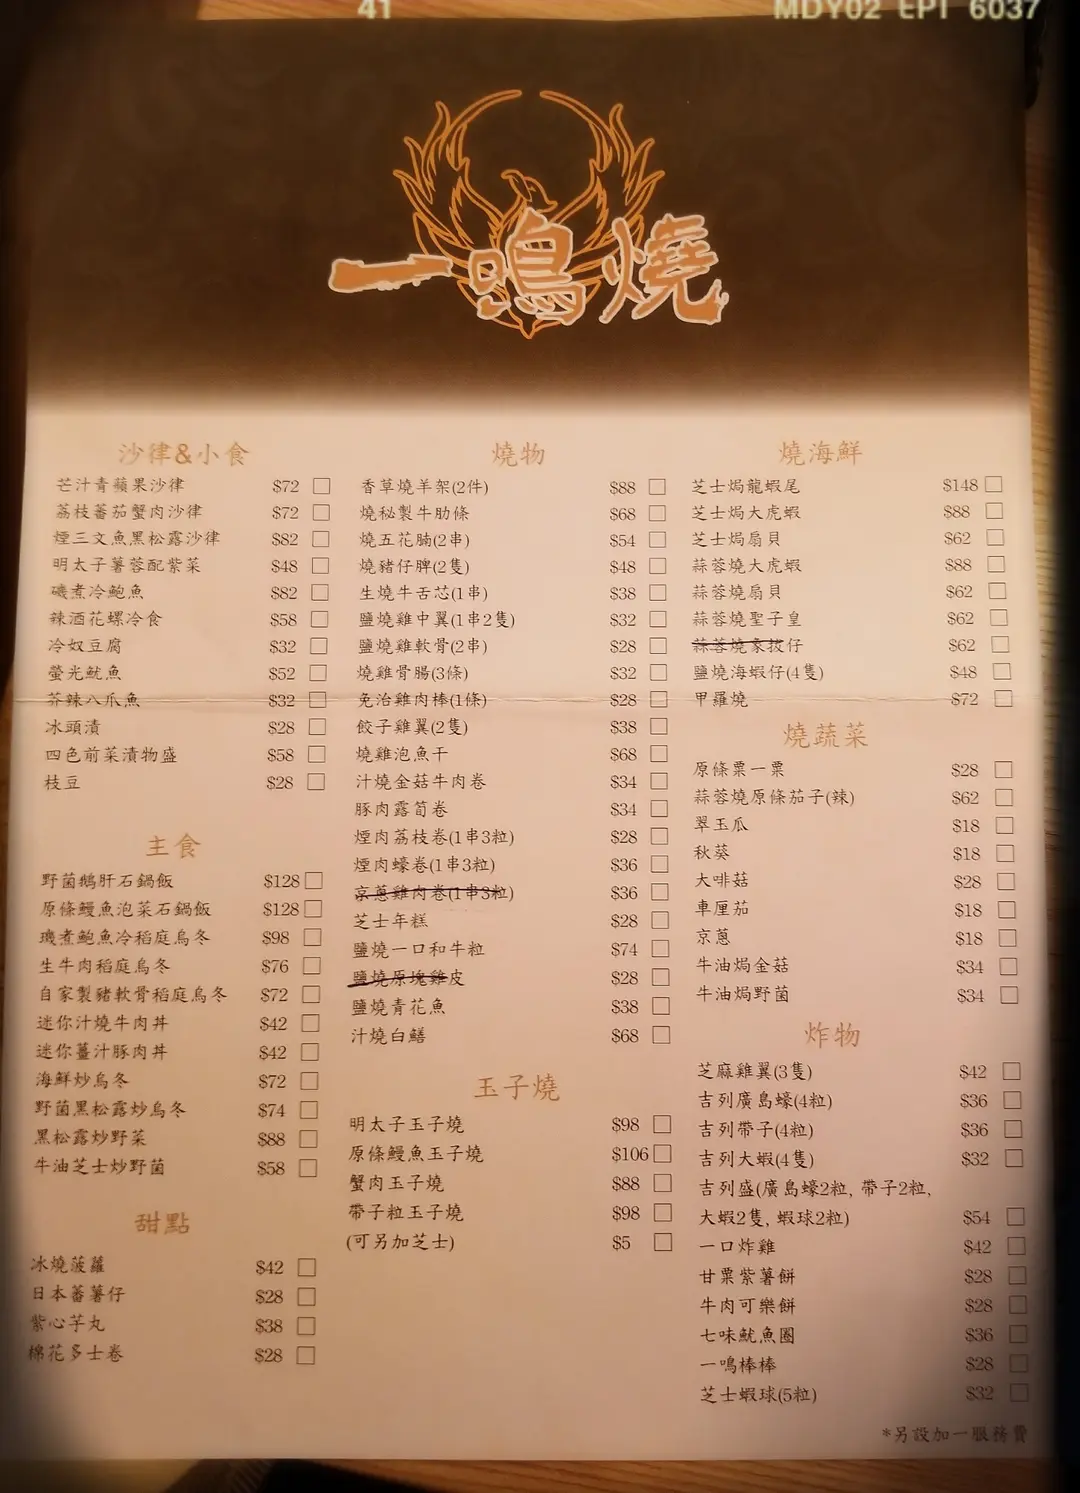 41 MDY02 EPI 6037
一鳴燒
沙律&小食
芒汁青蘋果沙律 $72
荔枝蕃茄蟹肉沙律 $72
煙三文魚黑松露沙律 $82
明太子薯蓉配紫菜 $48
磯煮冷鮑魚 $82
辣酒花螺冷食 $58
冷奴豆腐 $32
螢光魷魚 $52
芥辣八爪魚 $32
冰頭漬 $28
四色前菜漬物盛 $58
枝豆 $28
主食
野菌鵝肝石鍋飯 $128
原條鰻魚泡菜石鍋飯 $128
磯煮鮑魚冷稻庭烏冬 $98
生牛肉稻庭烏冬 $76
自家製豬軟骨稻庭烏冬 $72
迷你汁燒牛肉丼 $42
迷你薑汁豚肉丼 $42
海鮮炒烏冬 $72
野菌黑松露炒烏冬 $74
黑松露炒野菜 $88
牛油芝士炒野菌 $58
甜點
冰燒菠蘿 $42
日本蕃薯仔 $28
紫心芋丸 $38
棉花多士卷 $28
燒物
香草燒羊架(2件) $88
燒秘製牛肋條 $68
燒五花腩(2串) $54
燒豬仔脾(2隻) $48
生燒牛舌芯(1串) $38
鹽燒雞中翼(1串2隻) $32
鹽燒雞軟骨(2串) $28
燒雞骨腸(3條) $32
免治雞肉棒(1條) $28
餃子雞翼(2隻) $38
燒雞泡魚干 $68
汁燒金菇牛肉卷 $34
豚肉露筍卷 $34
煙肉荔枝卷(1串3粒) $28
煙肉蠔卷(1串3粒) $36
京蔥雞肉卷(1串3粒) $36
芝士年糕 $28
鹽燒一口和牛粒 $74
鹽燒原塊雞皮 $28
鹽燒青花魚 $38
汁燒白鱔 $68
玉子燒
明太子玉子燒 $98
原條鰻魚玉子燒 $106
蟹肉玉子燒 $88
帶子粒玉子燒 $98
(可另加芝士) $5
燒海鮮
芝士焗龍蝦尾 $148
芝士焗大虎蝦 $88
芝士焗扇貝 $62
蒜蓉燒大虎蝦 $88
蒜蓉燒扇貝 $62
蒜蓉燒聖子皇 $62
蒜蓉燒象拔仔 $62
鹽燒海蝦仔(4隻) $48
甲羅燒 $72
燒蔬菜
原條粟一粟 $28
蒜蓉燒原條茄子(辣) $62
翠玉瓜 $18
秋葵 $18
大啡菇 $28
車厘茄 $18
京蔥 $18
牛油焗金菇 $34
牛油焗野菌 $34
炸物
芝麻雞翼(3隻) $42
吉列廣島蠔(4粒) $36
吉列帶子(4粒) $36
吉列大蝦(4隻) $32
吉列盛(廣島蠔2粒, 帶子2粒,
大蝦2隻, 蝦球2粒) $54
一口炸雞 $42
甘粟紫薯餅 $28
牛肉可樂餅 $28
七味魷魚圈 $36
一鳴棒棒 $28
芝士蝦球(5粒) $32
*另設加一服務費